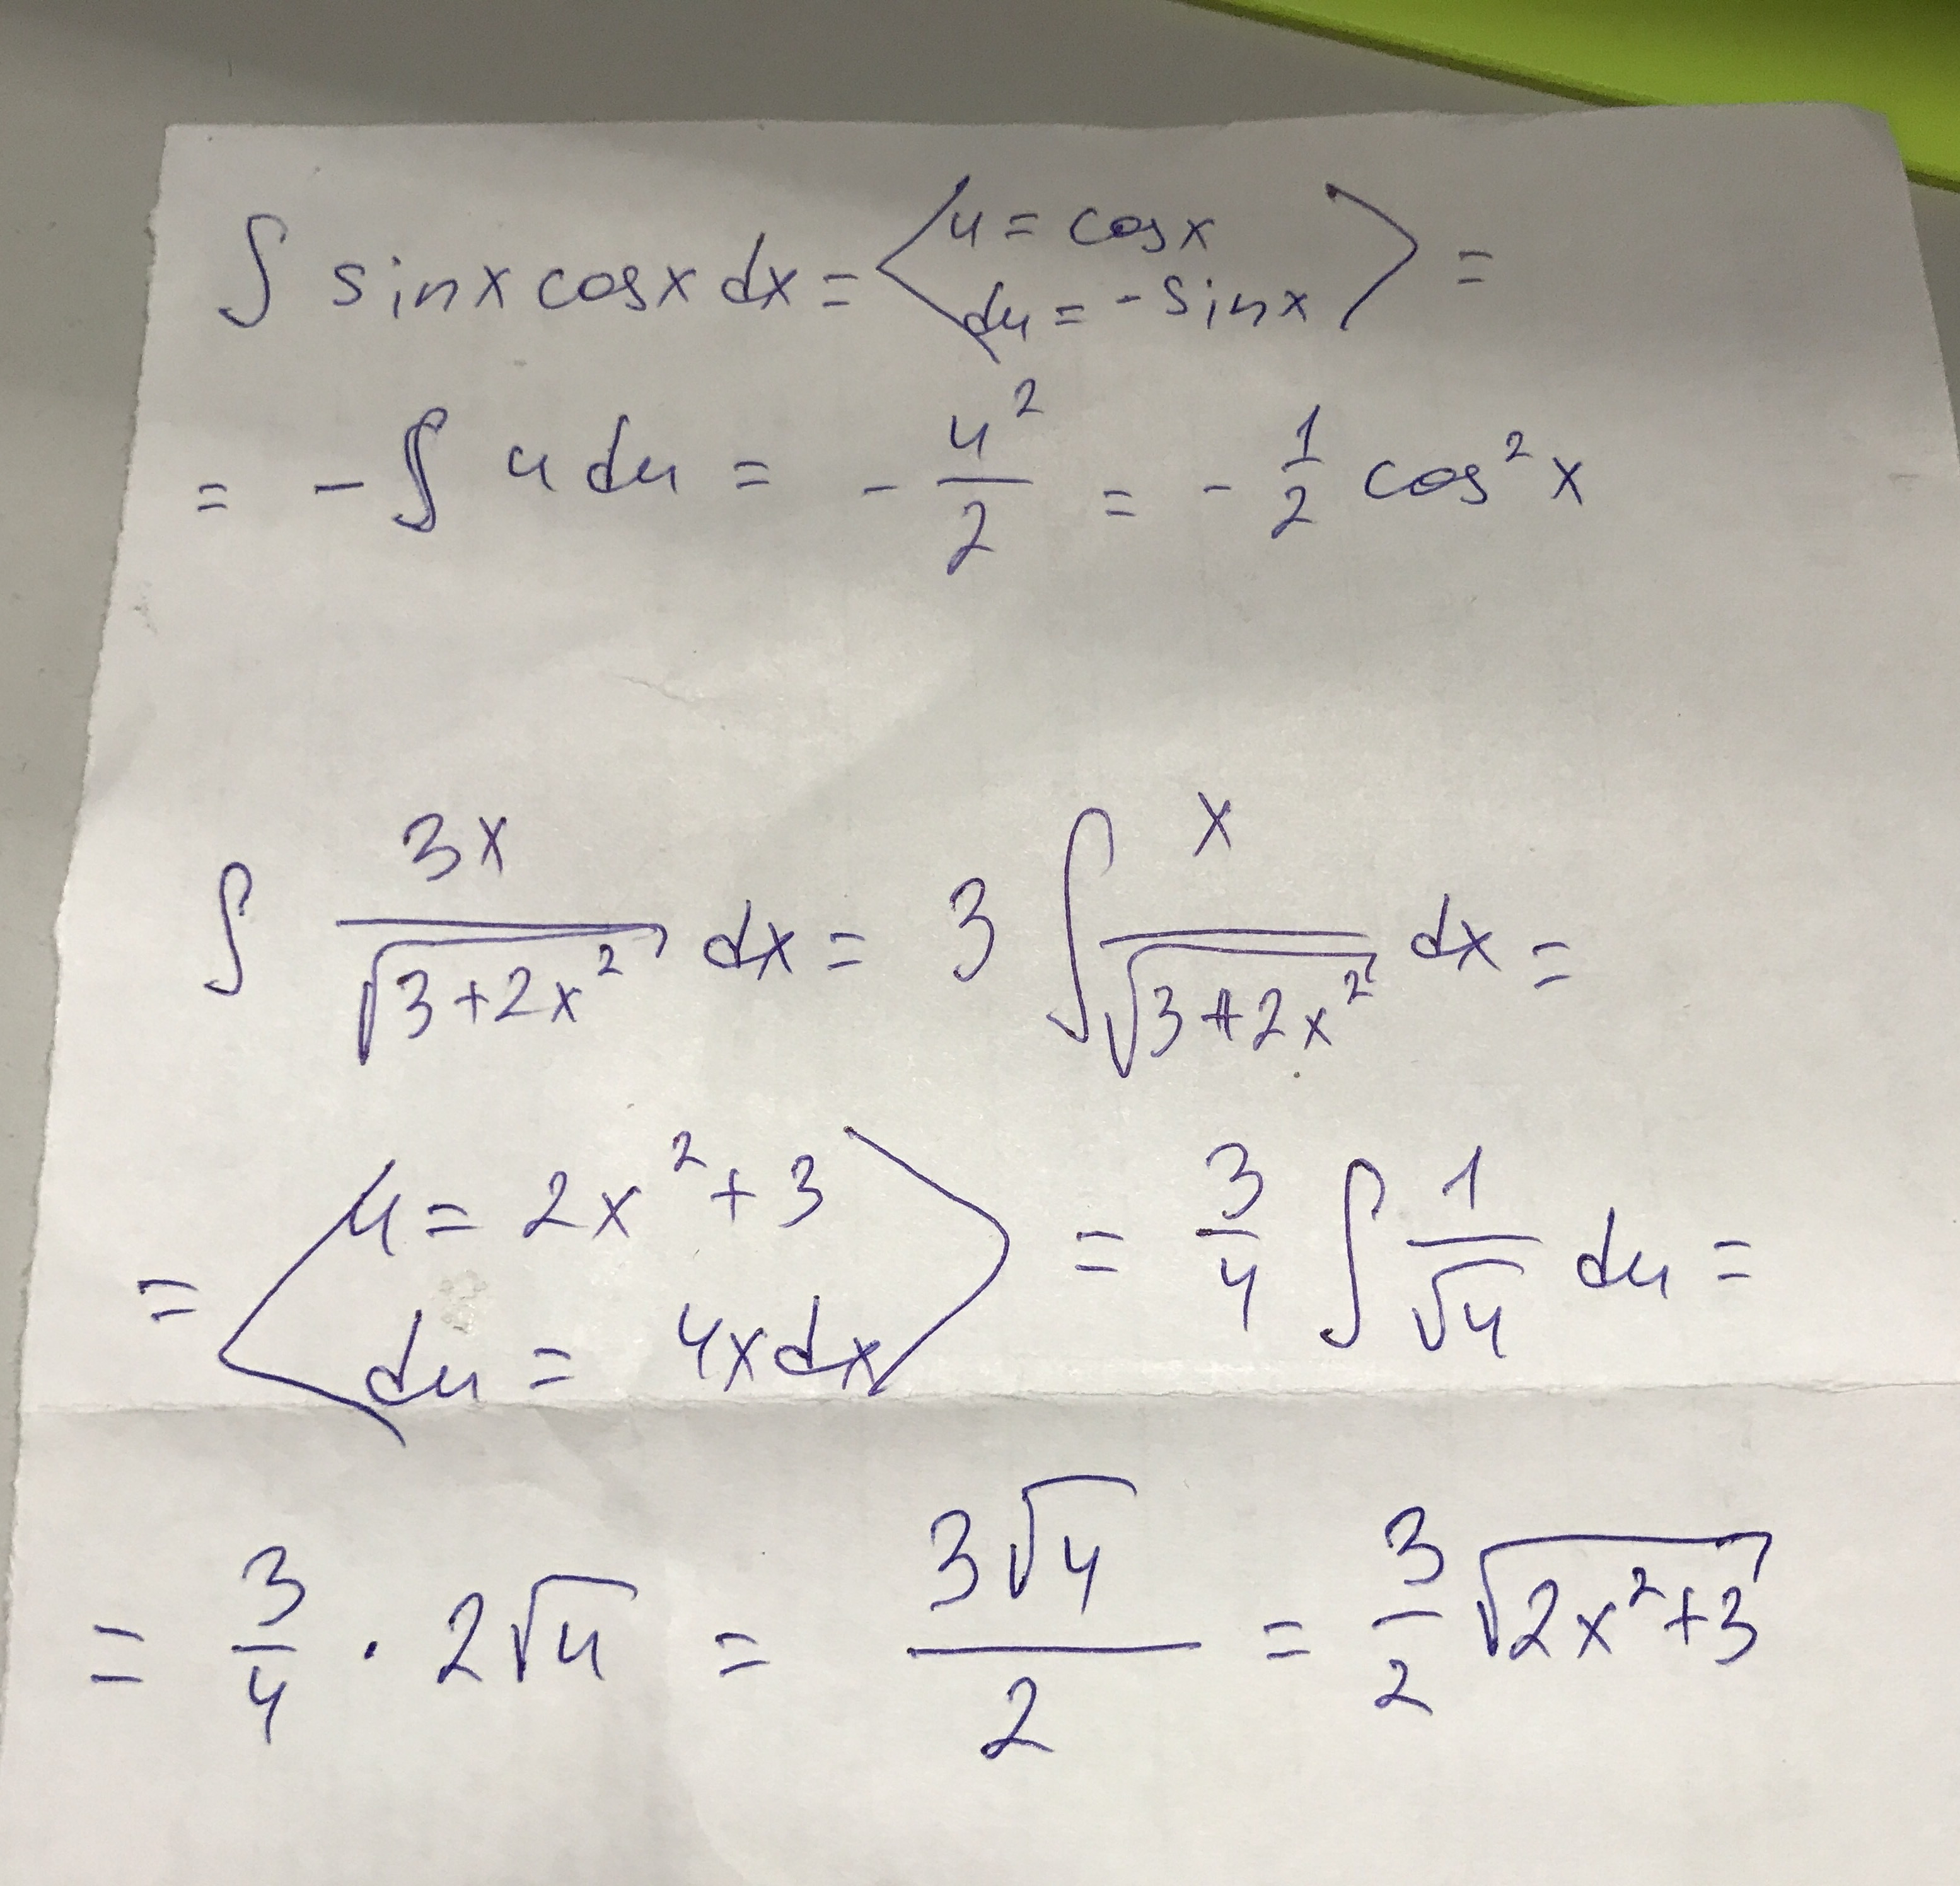 ∫ sinx cosx dx = ⟨ u = cosx
du = -sinx ⟩ =
= -∫ u du = - u²/2 = - 1/2 cos²x
∫ 3x/√(3+2x²) dx = 3 ∫ x/√(3+2x²) dx =
= ⟨ u = 2x²+3
du = 4xdx ⟩ = 3/4 ∫ 1/√u du =
= 3/4 · 2√u = 3√u/2 = 3/2 √(2x²+3)